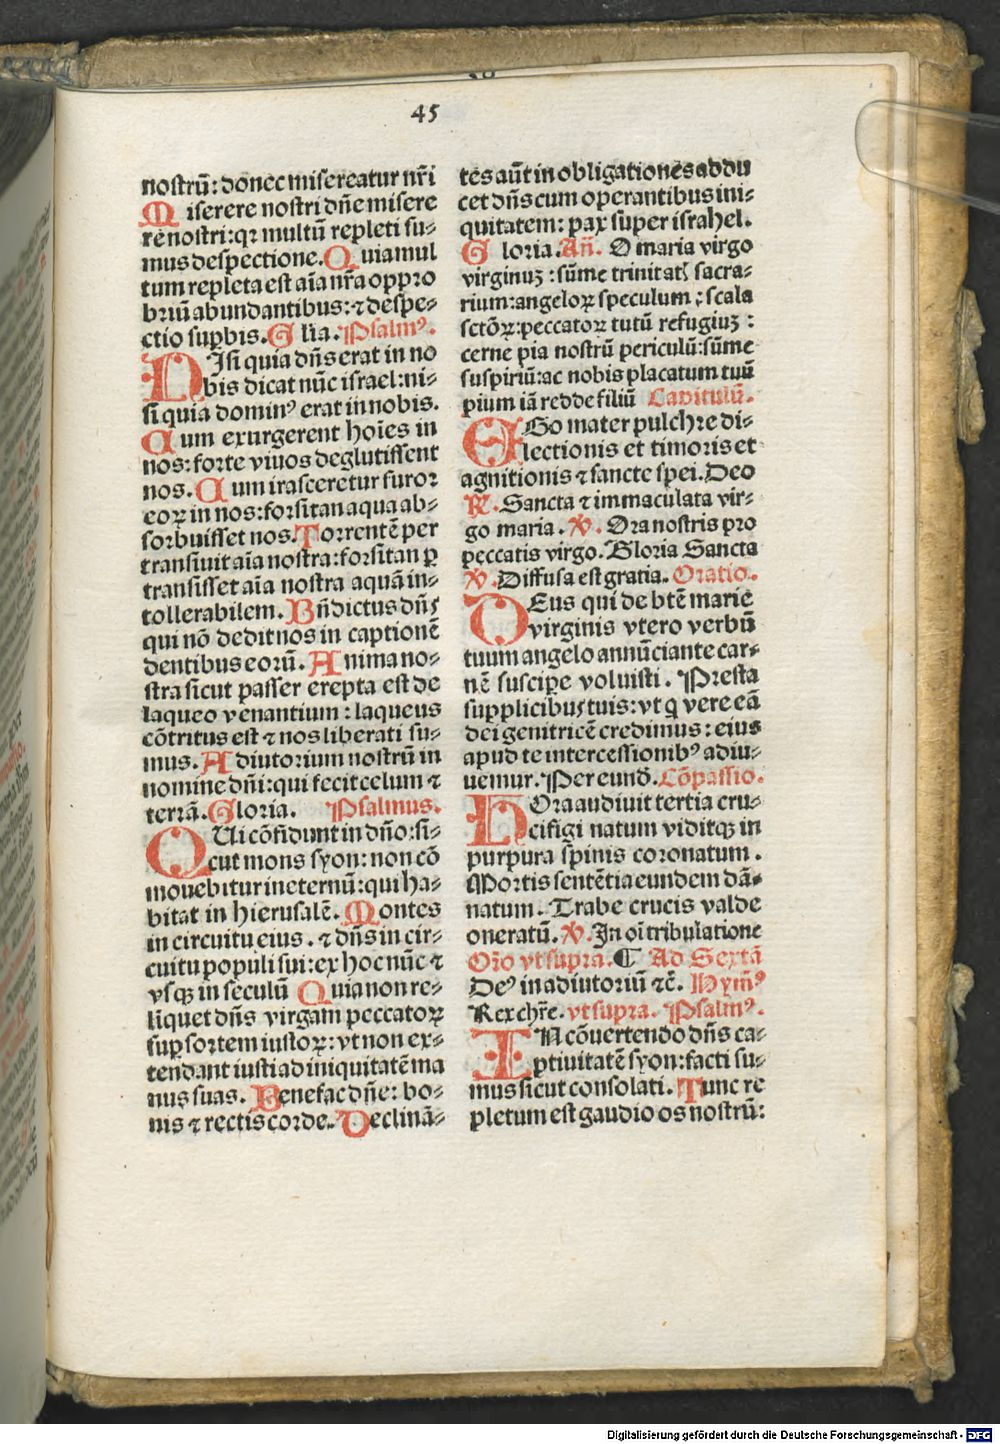 45
nostrū: donec misereatur nr̄i
Miserere nostri dn̄e misere
re nostri: qꝛ multū repleti su⸗
mus despectione. Quia mul
tum repleta est aīa nr̄a oppro
briū abundantibus: ⁊ despe⸗
ctio supbis. Glīa. Psalmꝰ.
NIsi quia dn̄s erat in no
bis dicat nūc israel: ni⸗
si quia dominꝰ erat in nobis.
Cum exurgerent hoīes in
nos: forte viuos deglutissent
nos. Cum irasceretur furor
eoꝝ in nos: forsitan aqua ab⸗
sorbuisset nos. Torrentē per
transiuit aīa nostra: forsitan ꝑ
transisset aīa nostra aquā in⸗
tollerabilem. Bn̄dictus dn̄s
qui nō dedit nos in captionē
dentibus eorū. Anima no⸗
stra sicut passer erepta est de
laqueo venantium: laqueus
cōtritus est ⁊ nos liberati su⸗
mus. Adiutorium nostrū in
nomine dn̄i: qui fecit celum ⁊
terrā. Gloria. Psalmus.
QUi cōfidunt in dn̄o: si⸗
cut mons syon: non cō
mouebitur in eternū: qui ha⸗
bitat in hierusalē. Montes
in circuitu eius. ⁊ dn̄s in cir⸗
cuitu populi sui: ex hoc nūc ⁊
vsqꝫ in seculū Quia non re⸗
liquet dn̄s virgam peccatoꝝ
sup sortem iustoꝝ: vt non ex⸗
tendant iusti ad iniquitatē ma
nus suas. Benefac dn̄e: bo⸗
nis ⁊ rectis corde. Declinā⸗
tes aūt in obligationes addu
cet dn̄s cum operantibus ini⸗
quitatem: pax super israhel.
Gloria. An̄. O maria virgo
virginuꝫ: sūme trinitatꝭ sacra⸗
rium: angeloꝝ speculum; scala
sctōꝝ: peccatoꝝ tutū refugiuꝫ:
cerne pia nostrū periculū: sūme
suspiriū: ac nobis placatum tuū
pium iā redde filiū Capitulū.
EGo mater pulchre di⸗
lectionis et timoris et
agnitionis ⁊ sancte spei. Deo
℟. Sancta ⁊ immaculata vir⸗
go maria. ℣. Ora nostris pro
peccatis virgo. Gloria Sancta
℣. Diffusa est gratia. Oratio.
DEus qui de btē marie
virginis vtero verbū
tuum angelo annūciante car⸗
nē suscipe voluisti. Presta
supplicibus tuis: vt q vere eā
dei genitricē credimus: eius
apud te intercessionibꝰ adiu⸗
uemur. Per eund̄. Cōpassio.
HOra audiuit tertia cru⸗
cifigi natum viditqꝫ in
purpura spinis coronatum.
Mortis sentētia eundem dā⸗
natum. Trabe crucis valde
oneratū. ℣. In oī tribulatione
Oŕo vt supra. ¶ Ad Sextā
Deꝰ in adiutoriū ⁊c̄. Hymꝰ
Rex chr̄e. vt supra. Psalmꝰ.
IN cōuertendo dn̄s ca⸗
ptiuitatē syon: facti su⸗
mus sicut consolati. Tunc re
pletum est gaudio os nostrū:
Digitalisierung gefördert durch die Deutsche Forschungsgemeinschaft - DFG